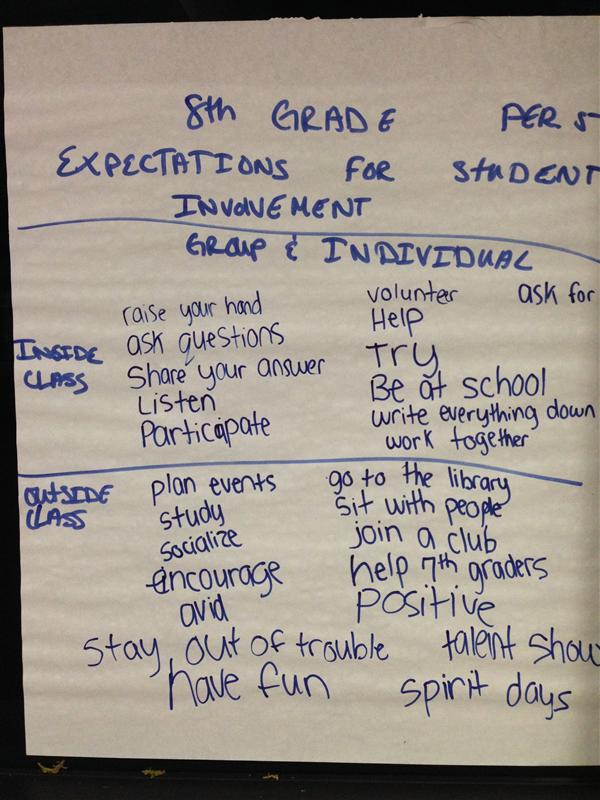 8th GRADE PER 5
EXPECTATIONS FOR STUDENT
INVOLVEMENT
GROUP & INDIVIDUAL
INSIDE CLASS
raise your hand
ask questions
Share your answer
Listen
Participate
volunter ask for
Help
Try
Be at school
write everything down
work together
OUTSIDE CLASS
plan events
study
socialize
encourage
avid
go to the library
sit with people
join a club
help 7th graders
Positive
stay out of trouble talent show
have fun spirit days